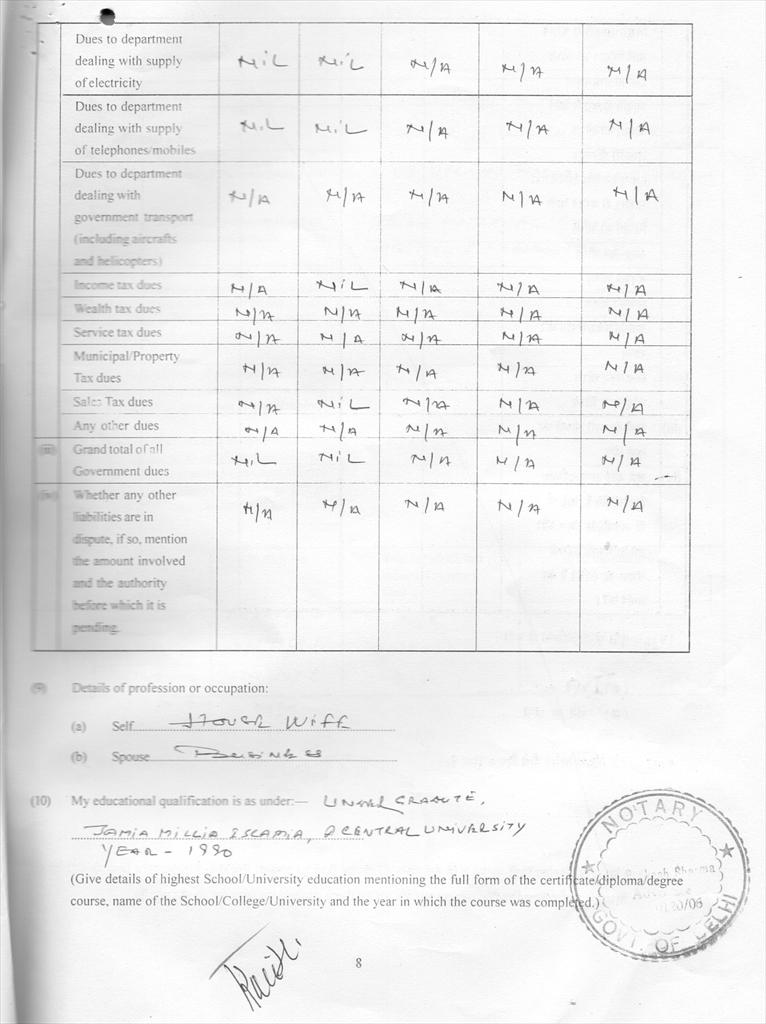 Dues to department
dealing with supply
of electricity
NiL NiL N/A N/A N/A
Dues to department
dealing with supply
of telephones/mobiles
NiL NiL N/A N/A N/A
Dues to department
dealing with
government transport
(including aircrafts
and helicopters)
N/A N/A N/A N/A N/A
Income tax dues N/A NiL N/A N/A N/A
Wealth tax dues N/A N/A N/A N/A N/A
Service tax dues N/A N/A N/A N/A N/A
Municipal/Property
Tax dues
N/A N/A N/A N/A N/A
Sales Tax dues N/A NiL N/A N/A N/A
Any other dues N/A N/A N/A N/A N/A
(iii) Grand total of all
Government dues
NiL NiL N/A N/A N/A
(iv) Whether any other
liabilities are in
dispute, if so, mention
the amount involved
and the authority
before which it is
pending.
N/A N/A N/A N/A N/A
(9) Details of profession or occupation:
(a) Self HOUSE WIFE
(b) Spouse BUSINESS
(10) My educational qualification is as under:— UNDER GRADUTE,
JAMIA MILLIA ISLAMIA, A CENTRAL UNIVERSITY
YEAR - 1990
(Give details of highest School/University education mentioning the full form of the certificate/diploma/degree
course, name of the School/College/University and the year in which the course was completed.)
NOTARY
Sharma
20/06
GOVT. OF DELHI
8